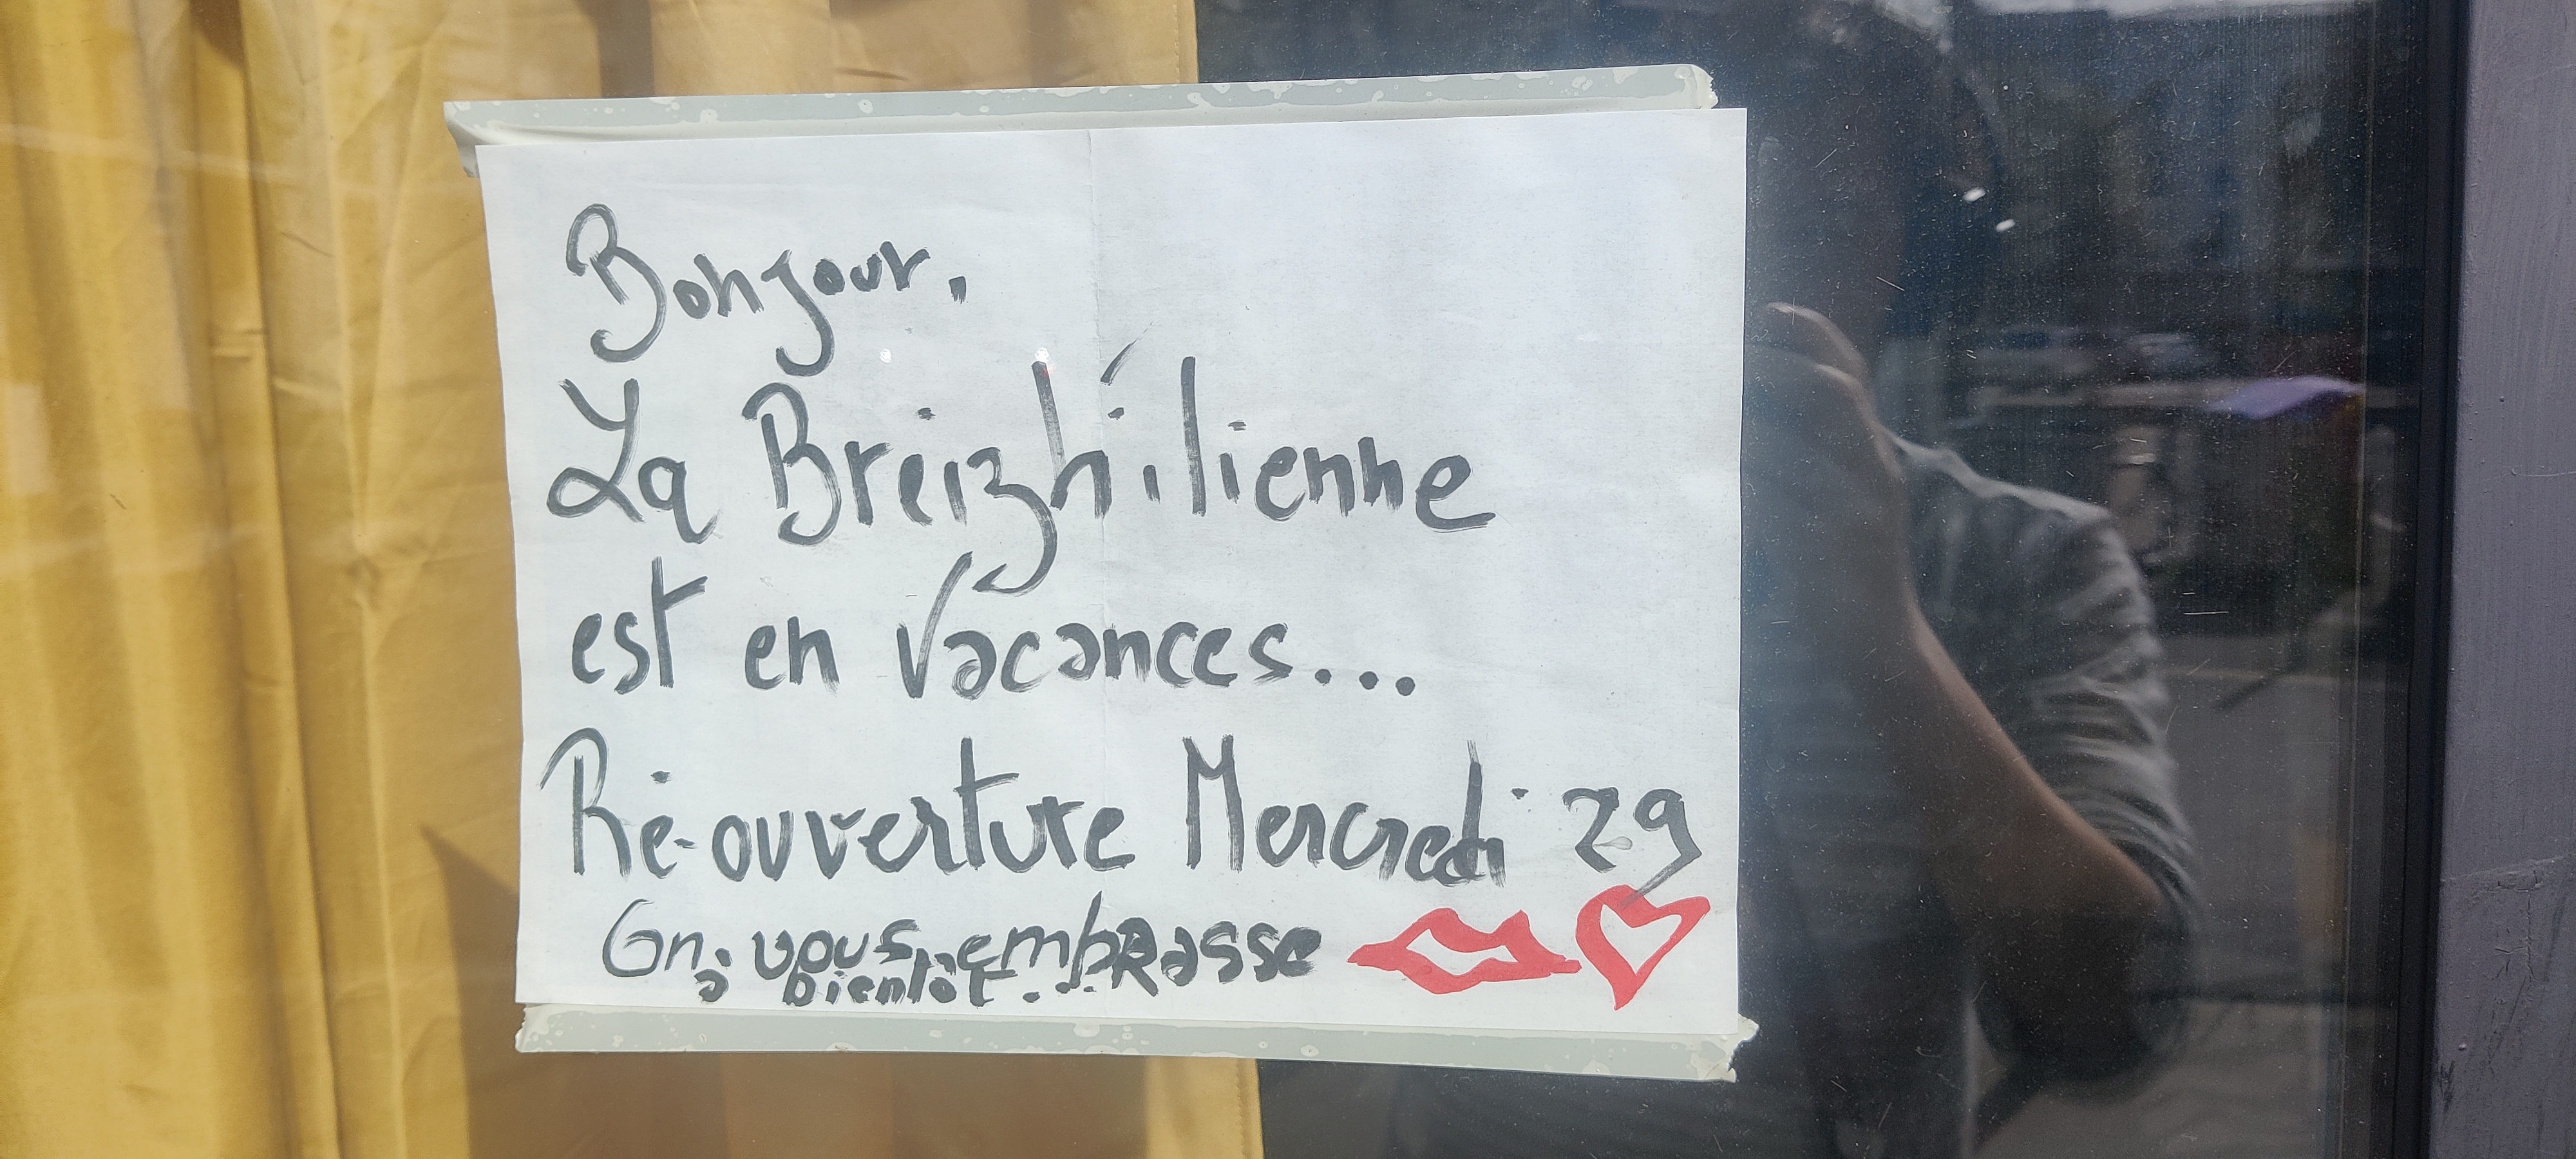 Bonjour,
La Breizh'ilienne
est en vacances...
Ré-ouverture Mercredi 29
On vous embRasse
à bientôt...